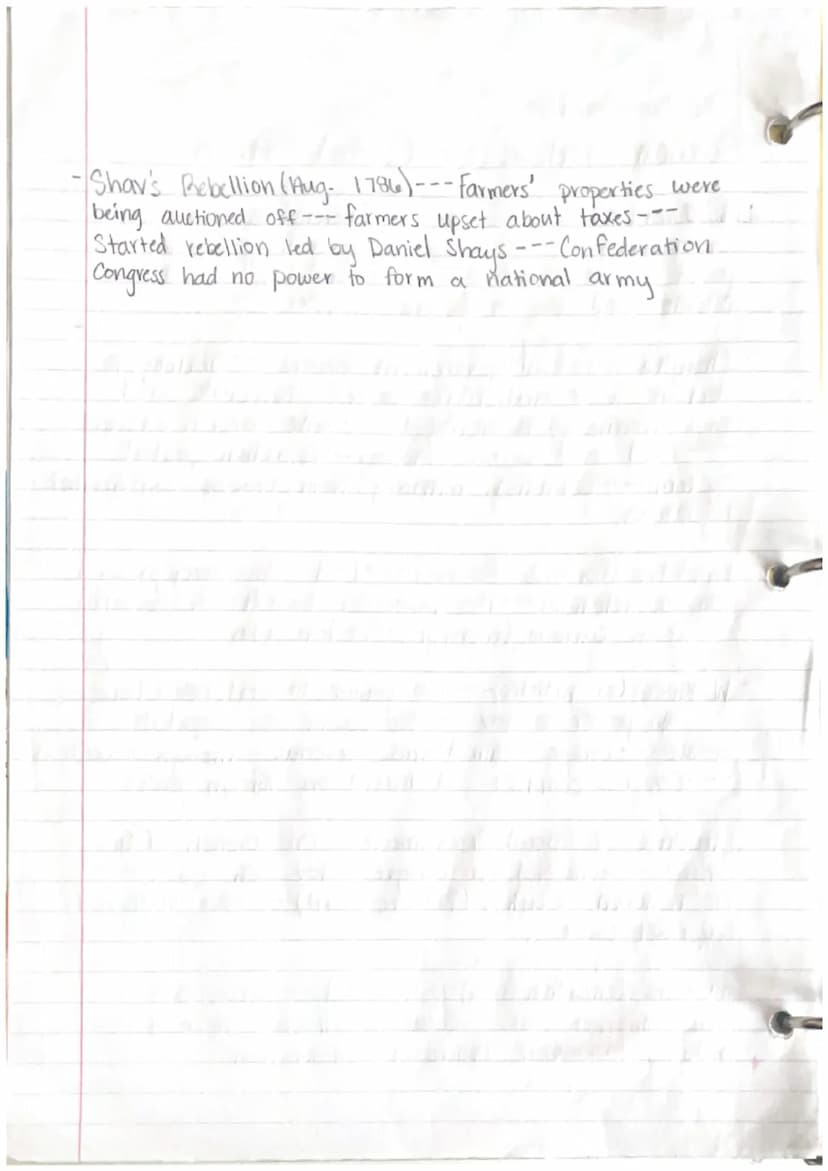 - Shay's Rebellion (Aug. 1786)--- Farmers' properties were
being auctioned off --- farmers upset about taxes ---
Started rebellion led by Daniel Shays --- Confederation
Congress had no power to form a national army